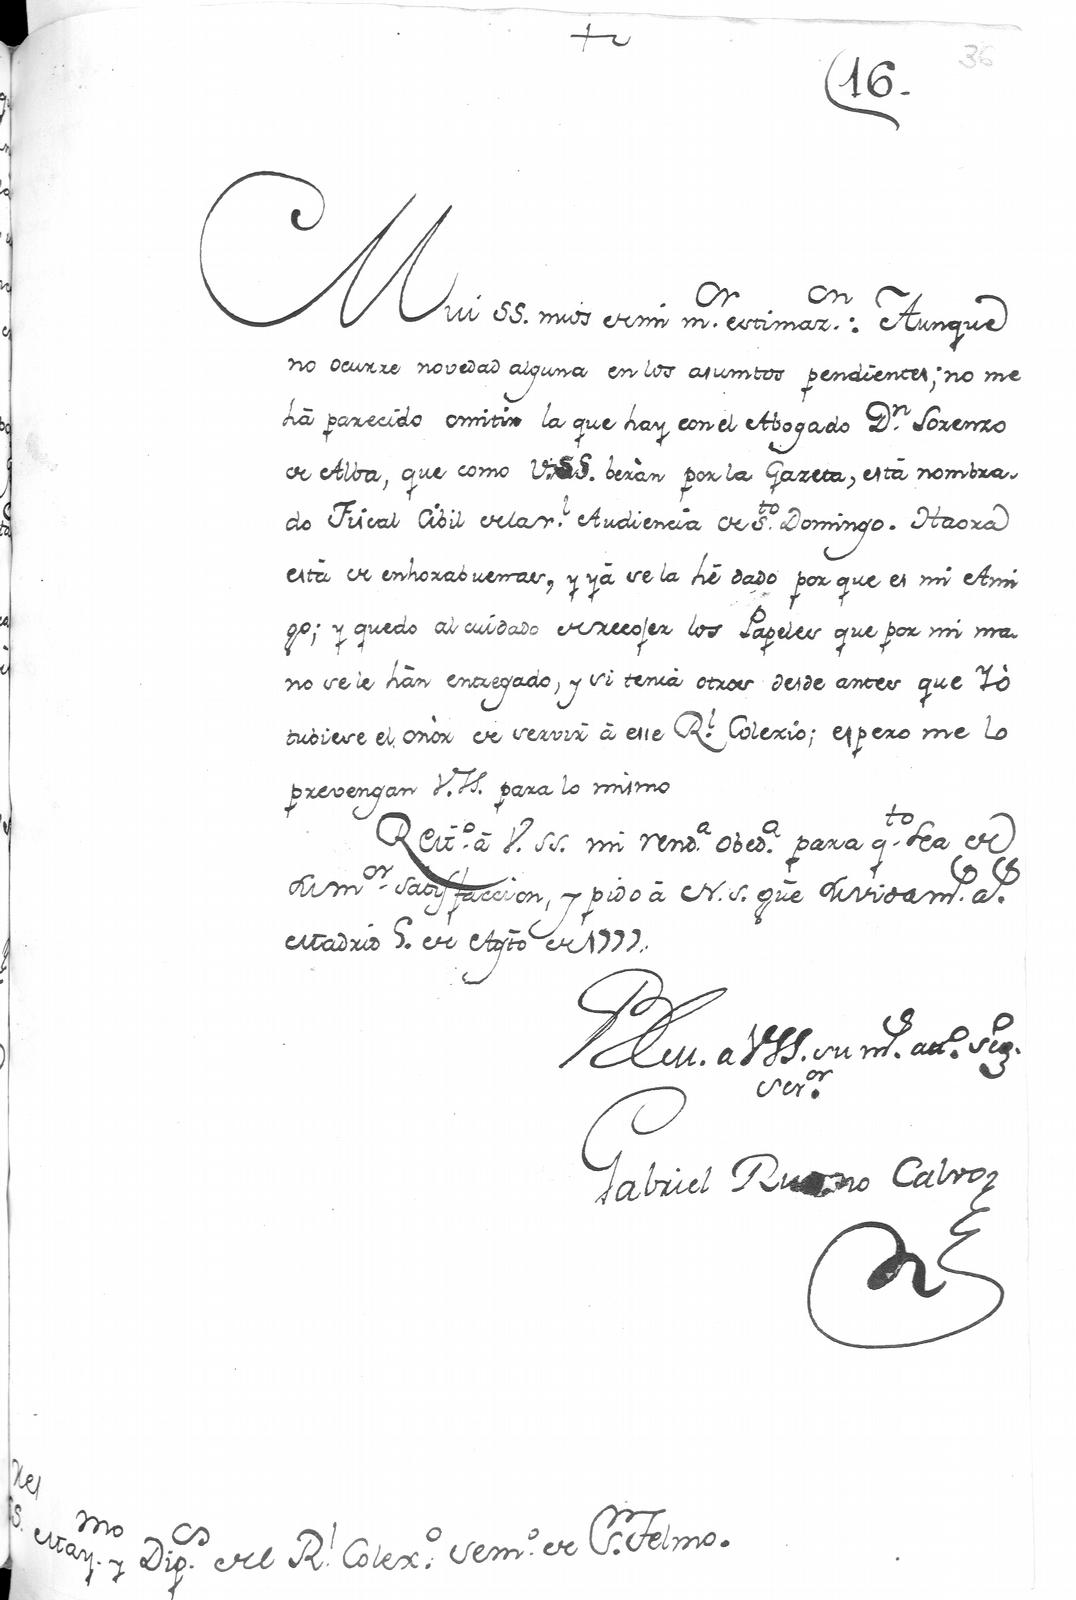 36
(16.
Mui SS. mios de mi m.or estimaz.on: Aunque
no ocurre novedad alguna en los asumtos pendientes; no me
há parecido omitir la que hay con el Abogado D.n Lorenzo
de Alba, que como V.SS. beràn por la Gazeta, està nombra-
do Fiscal Cibil de la r.l Audiencia de S.to Domingo. Haora
està de enhorabuenas, y yà se la hè dado por que es mi Ami
go; y quedo al cuidado de recojer los Papeles que por mi ma-
no se le hàn entregado, y si tenia otros desde antes que Yò
tubiese el onòr de servir à esse R.l Colexio; espero me lo
prevengan V.SS. para lo mismo
Reit.o à V.SS. mi rend.a obed.a para q.to sea de
su m.or satisfaccion, y pido à N.S. güe su vida m.s a.s
Madrid 5. de Agto de 1777.
BLM. a VSS. su m.s at.o seg.o
ser.or
Gabriel Ruano Calvo
SS. May.mo y Dip.s del R.l Colex.o Sem.o de S.n Telmo.